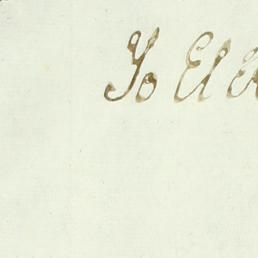 Yo El